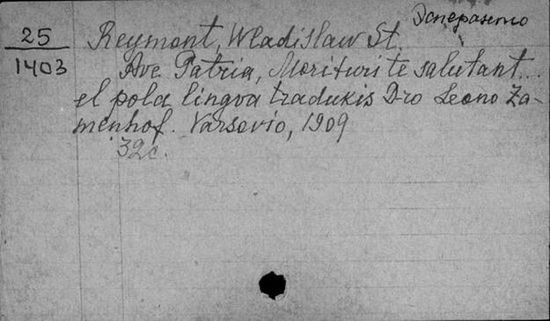 Эсперанто
25
1403
Reymont, Wladislaw St.
Ave Patria, Morituri te salutant...
el pola lingva tradukis D-ro Leono Za-
menhof. Varsovio, 1909
32c.